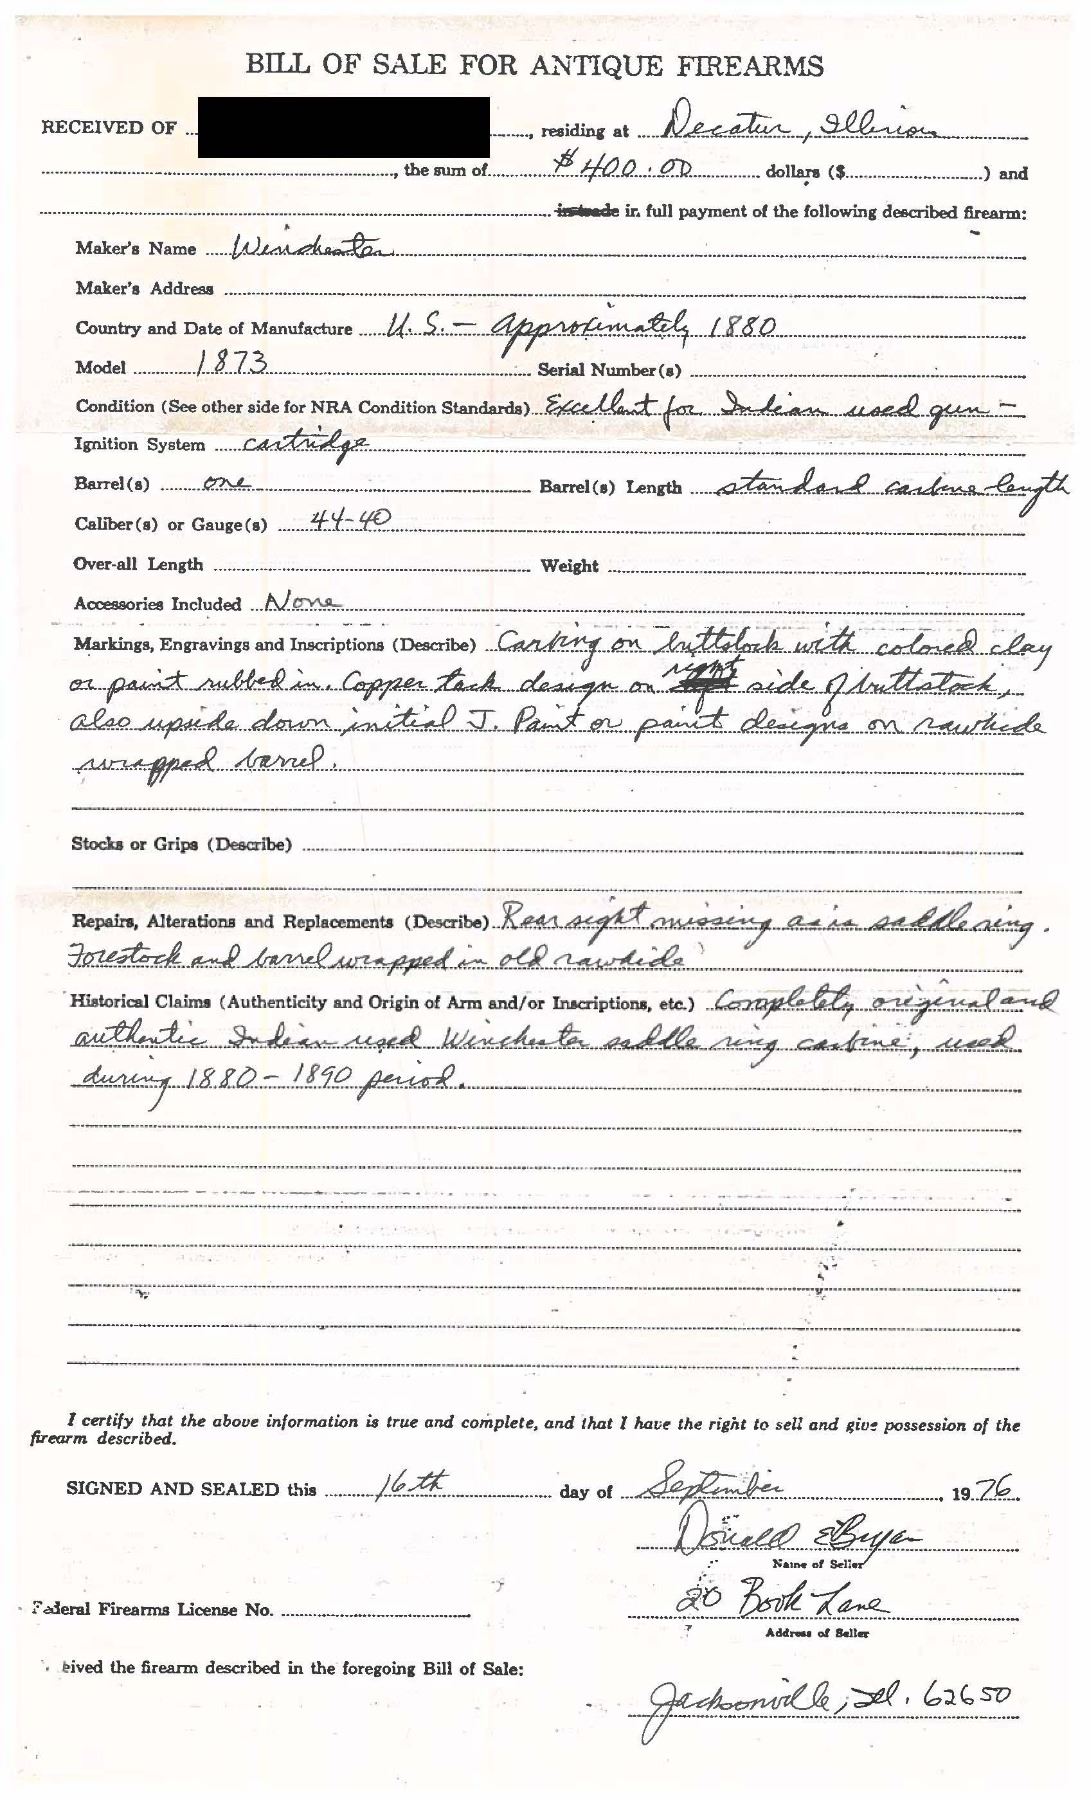 BILL OF SALE FOR ANTIQUE FIREARMS
RECEIVED OF ........, residing at Decatur, Illinois
, the sum of $400.00 dollars ($........) and
instrade in full payment of the following described firearm:
Maker's Name Winchester
Maker's Address
Country and Date of Manufacture U.S. - Approximately 1880
Model 1873 Serial Number(s)
Condition (See other side for NRA Condition Standards) Excellent for Indian used gun -
Ignition System cartridge
Barrel(s) one Barrel(s) Length standard carbine length
Caliber(s) or Gauge(s) 44-40
Over-all Length Weight
Accessories Included None
Markings, Engravings and Inscriptions (Describe) Carving on buttstock with colored clay
or paint rubbed in. Copper tack design on right side of buttstock,
also upside down initial J. Paint or paint designs on rawhide
wrapped barrel.
Stocks or Grips (Describe)
Repairs, Alterations and Replacements (Describe) Rear sight missing as is saddle ring.
Forestock and barrel wrapped in old rawhide
Historical Claims (Authenticity and Origin of Arm and/or Inscriptions, etc.) Completely original and
authentic Indian used Winchester saddle ring carbine, used
during 1880-1890 period.
I certify that the above information is true and complete, and that I have the right to sell and give possession of the
firearm described.
SIGNED AND SEALED this 16th day of September, 1976.
Donald E Bryan
Name of Seller
Federal Firearms License No. 20 Book Lane
Address of Seller
eived the firearm described in the foregoing Bill of Sale:
Jacksonville, Ill. 62650